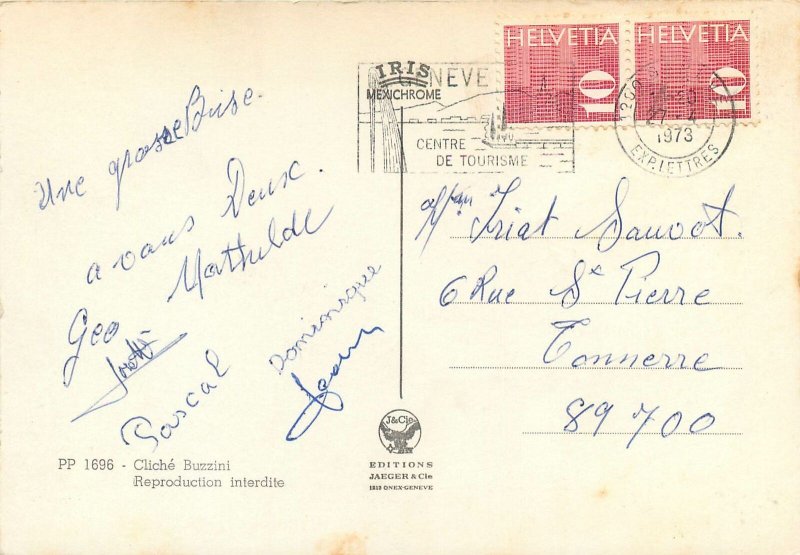 Une grosse Bise.
a vous Deux.
Geo Mathilde
Dominique
Pascal
PP 1696 - Cliché Buzzini
Reproduction interdite
IRIS
MEXICHROME
J&Cie
EDITIONS
JAEGER & Cie
1213 ONEX-GENEVE
GENEVE
CENTRE
DE TOURISME
HELVETIA
10
HELVETIA
10
1200
27
1973
EXP. LETTRES
Triat Sauvot.
6 Rue St Pierre
Tonnerre
89700